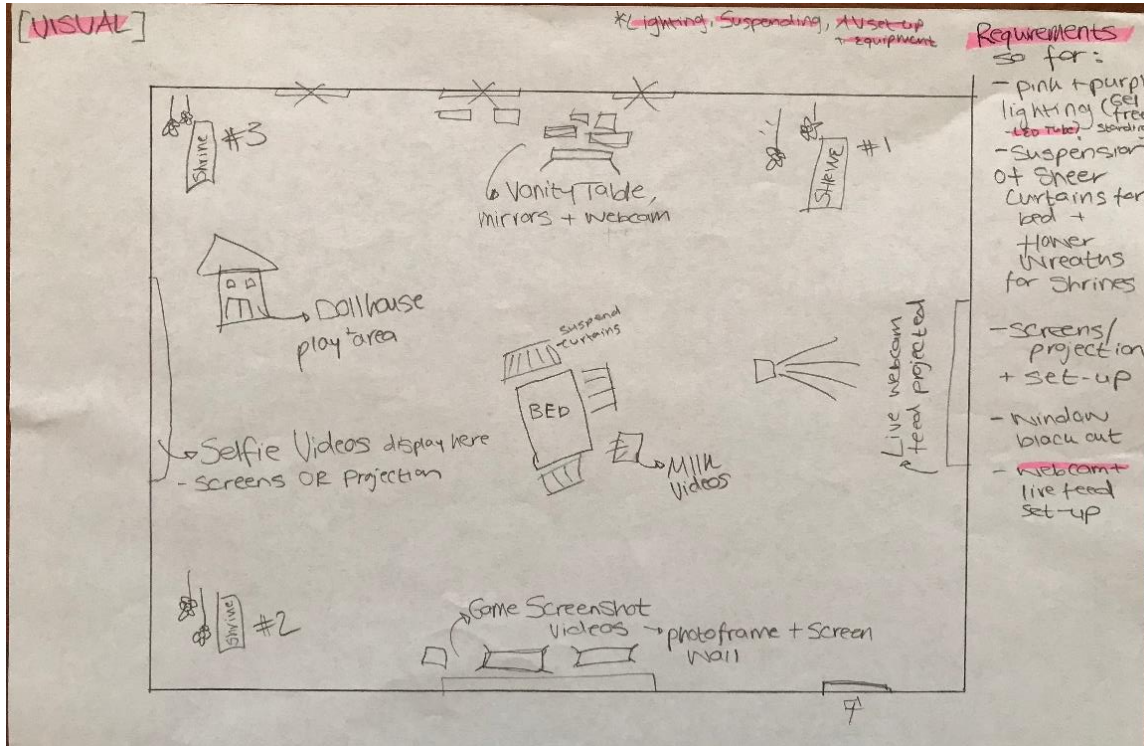 [VISUAL]
*Lighting, Suspending, AV set-up
+ Equipment
Requrements
so far:
- pink + purpl
lighting (Gel
free
- LED Tube? Standi
- Suspension
of sheer
curtains for
bed +
flower
wreaths
for shrines
- screens/
projection
+ set-up
- window
black out
- webcam +
live feed
set-up
Shrine #3
Vanity Table,
mirrors + webcam
SHRINE #1
Dollhouse
play area
suspend
curtains
BED
Milk
Videos
Live webcam
feed projected
Selfie Videos display here
- screens OR Projection
Shrine #2
Game Screenshot
videos → photoframe + screen
wall